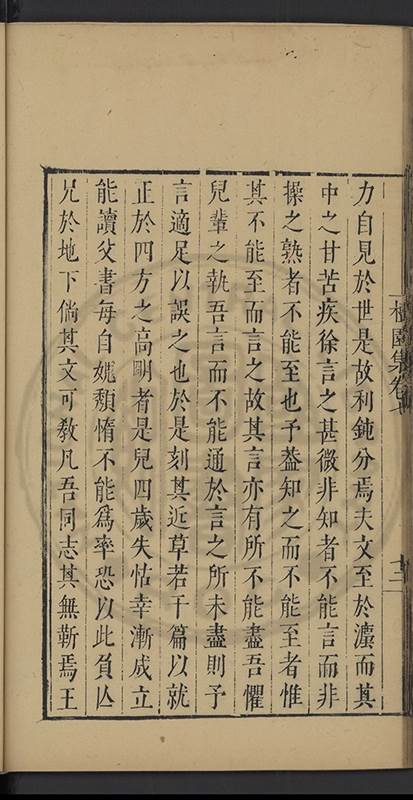 力自見於世是故利鈍分焉夫文至於濃而其
中之甘苦疾徐言之甚微非知者不能言而非
操之熟者不能至也予葢知之而不能至者惟
其不能至而言之故其言亦有所不能盡吾懼
兒輩之執吾言而不能通於言之所未盡則予
言適足以誤之也於是刻其近草若干篇以就
正於四方之高明者是兒四歲失怙幸漸成立
能讀父書每自媿頹惰不能爲率恐以此負亾
兄於地下倘其文可教凡吾同志其無靳焉王
園集卷七
十三